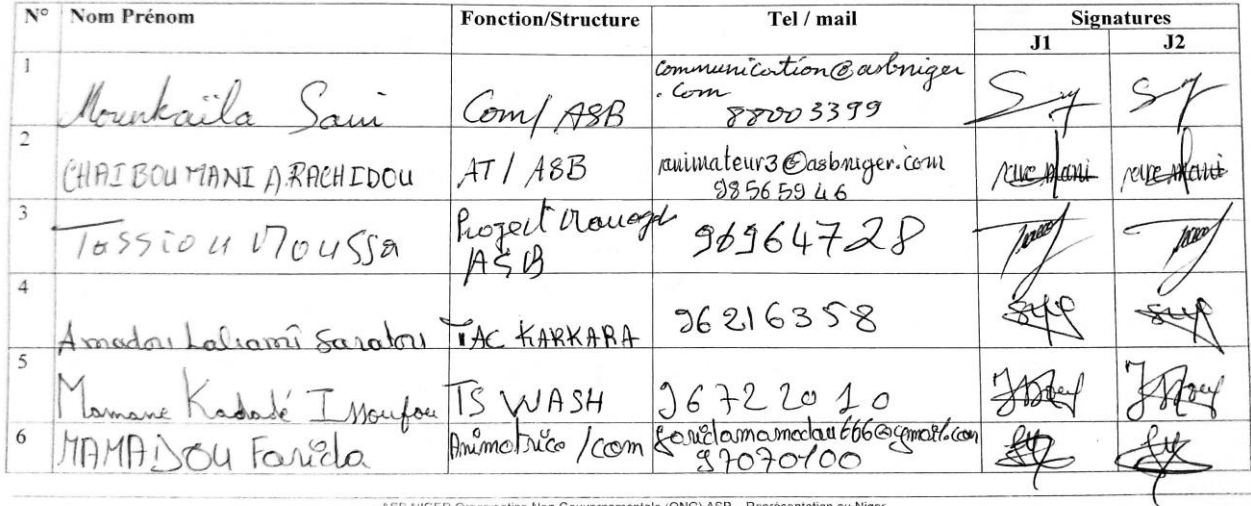 N° Nom Prénom Fonction/Structure Tel / mail Signatures
J1 J2
1 Mounkaïla Sani Com/ ASB communication@asbniger
.com
88003399 
2 CHAIBOU MANI A.RACHIDOU AT / ASB animateur3@asbniger.com
98565946
3 Tassiou Moussa Project 96964728
ASB
4 Amadou Lahami Saratou TAC KARKARA 96216358
5 Mamane Kadadé Issoufou TS WASH 96722010
6 MAMADOU Farida Animatrice /com faridamamadou666@gmail.com
97070100
ASB NIGER Organisation Non Gouvernementale (ONG) ASB - Représentation au Niger